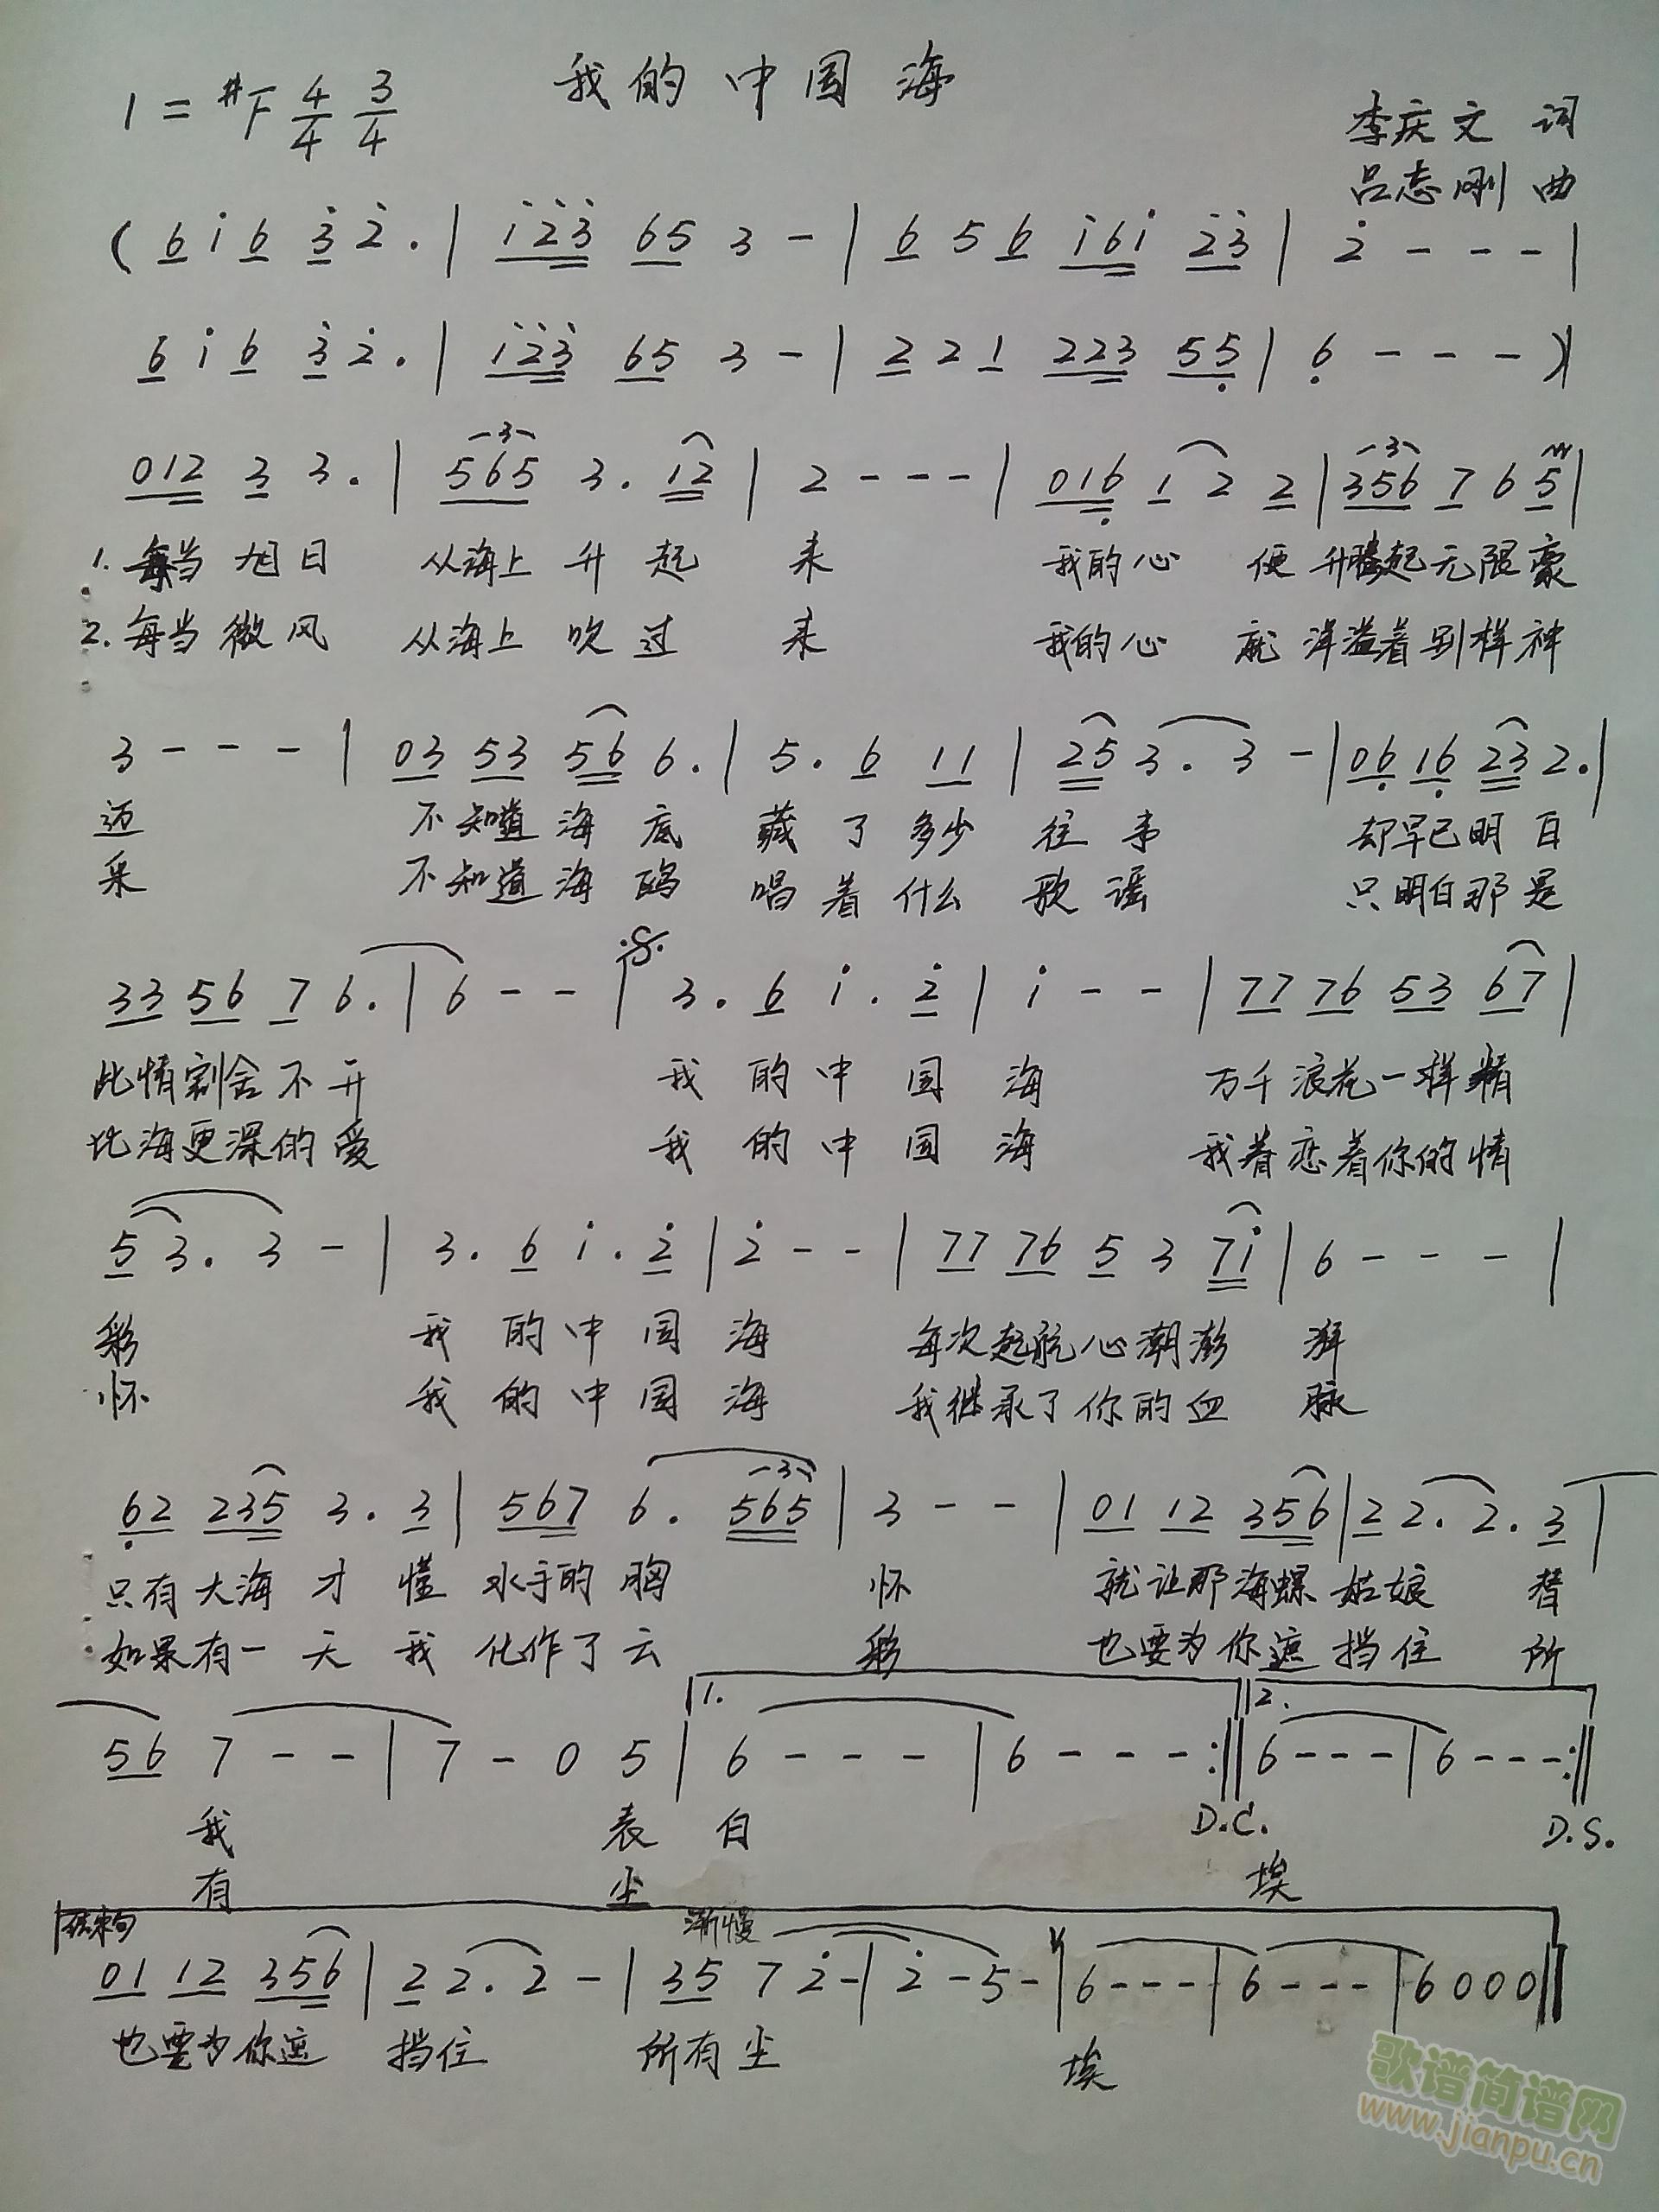 我的中国海
1=#F 4/4 3/4
李庆文 词
吕志刚 曲
( 6 i 6 3 2 . | i23 65 3 - | 6 5 6 i6i 23 | 2 - - - |
6 i 6 3 2 . | i23 65 3 - | 2 2 1 223 55 | 6 - - - )|
012 3 3 . | 565 3 . 12 | 2 - - - | 016 1 2 2 | 356 7 6 5 |
1. 每当旭日 从海上升起来 我的心便升腾起无限豪
2. 每当微风 从海上吹过来 我的心就洋溢着别样神
3 - - - | 03 53 56 6 . | 5 . 6 11 | 25 3 . 3 - | 06 16 23 2 . |
迈 不知道海底藏了多少往事 却早已明白
采 不知道海鸥唱着什么歌谣 只明白那是
33 56 7 6 . | 6 - - | 3 . 6 i . 2 | i - - | 77 76 53 67 |
此情割舍不开 我的中国海 万千浪花一样精
比海更深的爱 我的中国海 我眷恋着你的情
5 3 . 3 - | 3 . 6 i . 2 | 2 - - | 77 76 5 3 7i | 6 - - - |
彩 我的中国海 每次起航心潮澎湃
怀 我的中国海 我继承了你的血脉
62 235 3 . 3 | 567 6 . 565 | 3 - - | 01 12 356 | 2 2 . 2 . 3 |
只有大海才懂水手的胸怀 就让那海螺姑娘替
如果有一天我化作了云彩 也要为你遮挡住所
1. 2.
56 7 - - | 7 - 0 5 | 6 - - - | 6 - - - :‖ 6 - - - | 6 - - - :‖
D.C. D.S.
我 表白
有 尘 埃
结束句 渐慢
01 12 356 | 2 2 . 2 - | 35 7 2 - | 2 - 5 - | 6 - - - | 6 - - - | 6 0 0 0 ‖
也要为你遮挡住 所有尘埃
歌谱简谱网
www.jianpu.cn